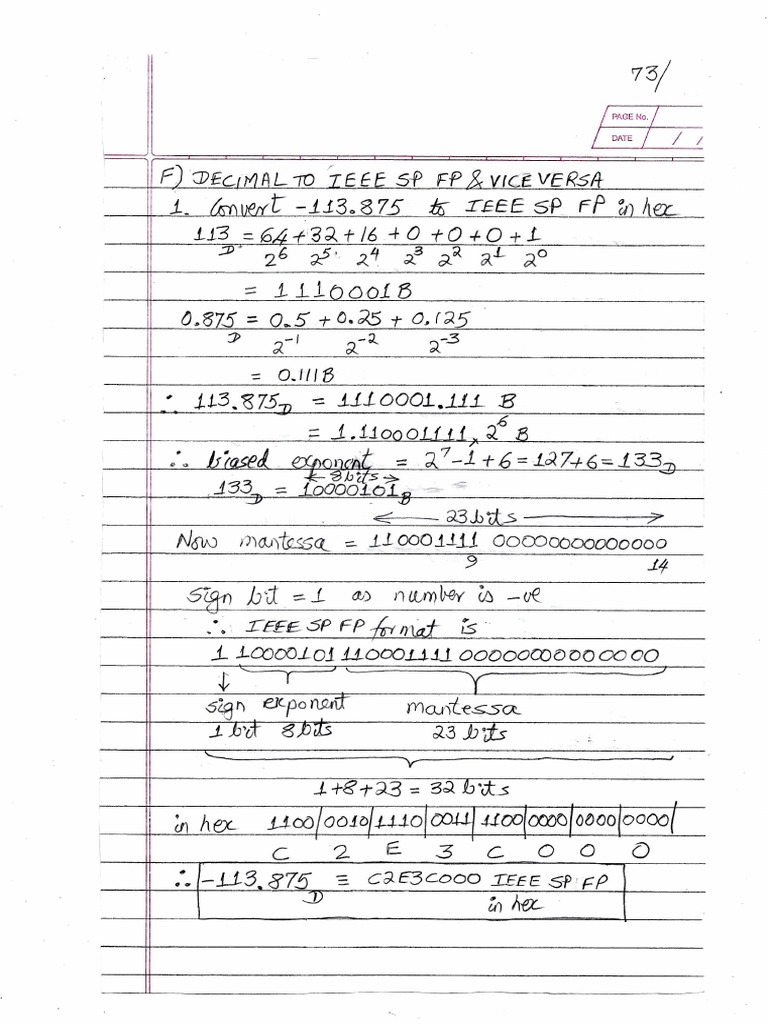 73/
PAGE No.
DATE / /
F) DECIMAL TO IEEE SP FP & VICE VERSA
1. Convert -113.875 to IEEE SP FP in hex
113D = 64+32+16+0+0+0+1
2^6 2^5 2^4 2^3 2^2 2^1 2^0
= 1110001B
0.875D = 0.5 + 0.25 + 0.125
2^-1 2^-2 2^-3
= 0.111B
∴ 113.875D = 1110001.111 B
= 1.110001111 x 2^6 B
∴ biased exponent = 2^7-1+6=127+6=133D
←8bits→
133D = 10000101B
← 23 bits →
Now mantessa = 110001111 00000000000000
9 14
Sign bit = 1 as number is -ve
∴ IEEE SP FP format is
1 10000101 110001111 00000000000000
↓
sign exponent mantessa
1 bit 8bits 23 bits
1+8+23 = 32 bits
in hex 1100/0010/1110/0011/1100/0000/0000/0000/
C 2 E 3 C 0 0 0
∴ -113.875D ≡ C2E3C000 IEEE SP FP
in hex